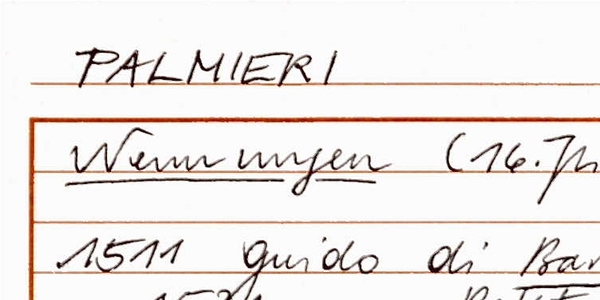 PALMIERI
Nennungen (16. Jh
1511 Guido di Bar